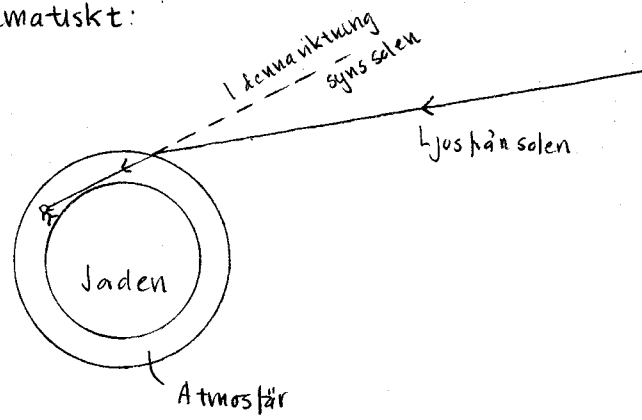 matiskt:
I denna riktning
syns solen
Ljus från solen
Jorden
Atmosfär